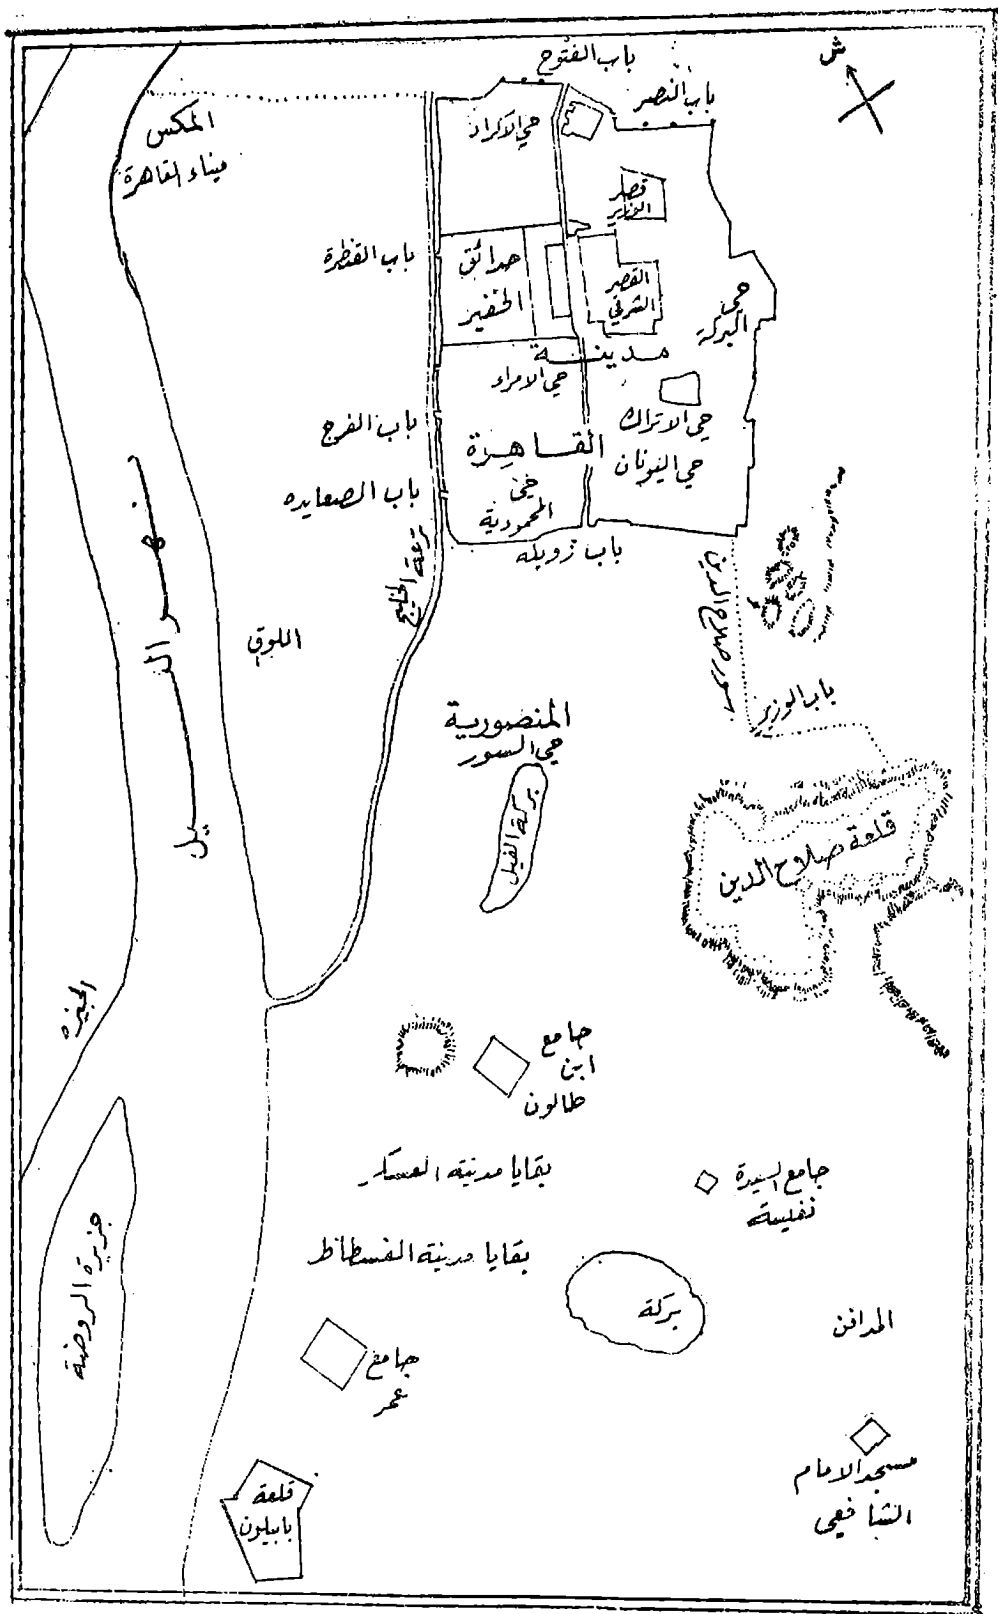 باب الفتوح
ش
باب النصر
المكس
ميناء القاهرة
حي الاكراد
قصر
الوزير
باب القنطرة
حدائق
الخفير
القصر
الشرقي
حي
البركة
مدينة
حي الامراء
القاهرة
باب الفرج
حي الاتراك
حي اليونان
باب الصعايده
حي
المحمودية
باب زويله
ترعة الخليج
سور صلاح الدين
نهر النيل
اللوق
باب الوزير
المنصورية
حي السور
بركة الفيل
قلعة صلاح الدين
الجيزه
جامع
ابن
طالون
بقايا مدينة العسكر
جامع السيدة
نفيسة
بقايا مدينة الفسطاط
جزيرة الروضة
بركة
المدافن
جامع
عمر
مسجد الامام
الشافعي
قلعة
بابيلون